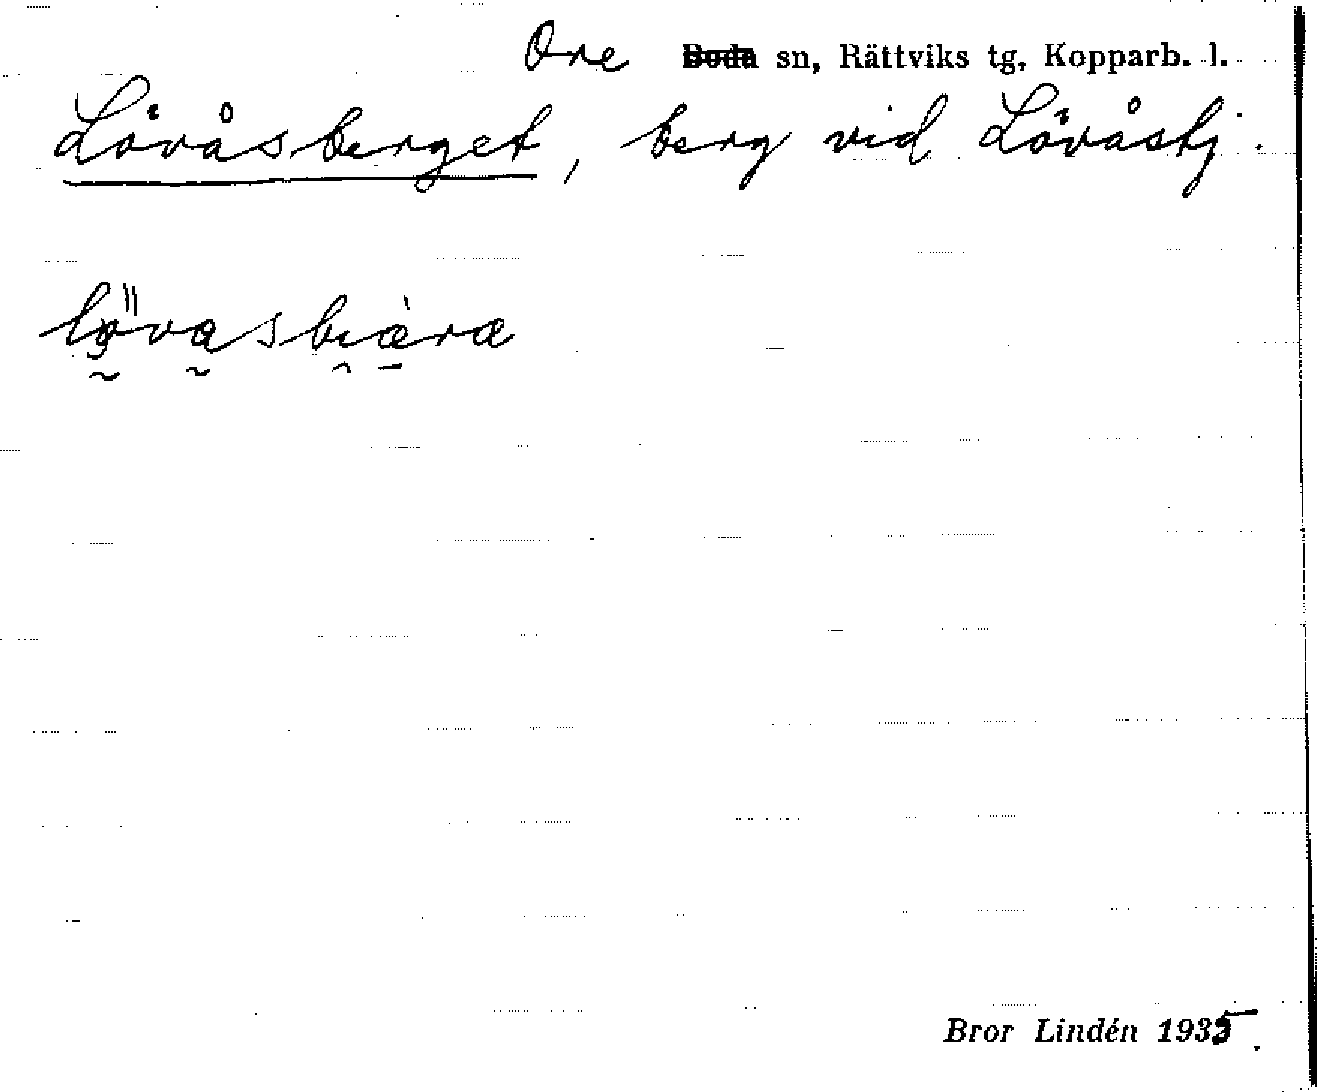 Ore ~~Boda~~ sn, Rättviks tg, Kopparb. l.
Lövåsberget, berg vid Lövåstj.
Bror Lindén 1935.